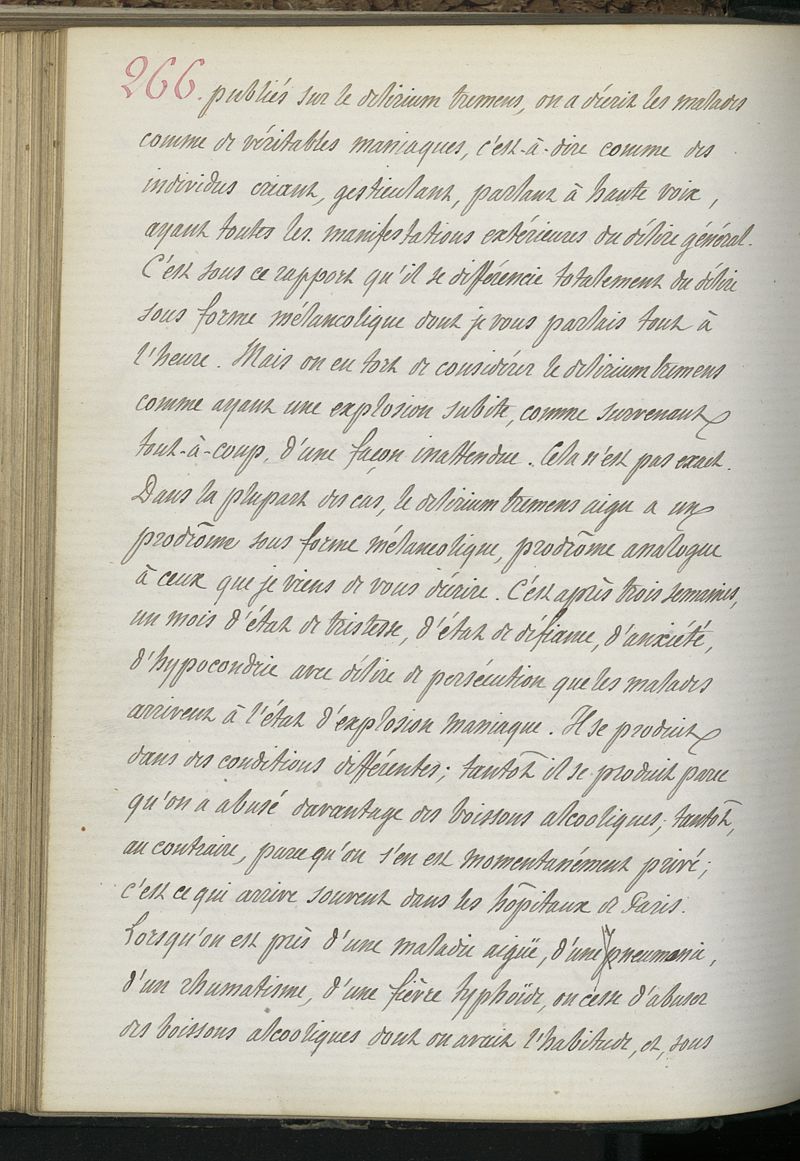 266. publiés sur le delirium tremens, on a décrit les malades
comme de véritables maniaques, c'est-à-dire comme des
individus criant, gesticulant, parlant à haute voix,
ayant toutes les manifestations extérieures du délire général.
C'est sous ce rapport qu'il se différencie totalement du délire
sous forme mélancolique dont je vous parlais tout à
l'heure. Mais on eu tort de considérer le delirium tremens
comme ayant une explosion subite, comme survenant
tout-à-coup, d'une façon inattendue. Cela n'est pas exact.
Dans la plupart des cas, le delirium tremens aigu a un
prodrôme sous forme mélancolique, prodrôme analogue
à ceux que je viens de vous décrire. C'est après trois semaines,
un mois d'état de tristesse, d'état de défiance, d'anxiété,
d'hypocondrie avec délire de persécution que les malades
arrivent à l'état d'explosion maniaque. Il se produit
dans des conditions différentes; tantôt il se produit parce
qu'on a abusé davantage des boissons alcooliques; tantôt,
au contraire, parce qu'on s'en est momentanément privé;
c'est ce qui arrive souvent dans les hôpitaux de Paris.
Lorsqu'on est pris d'une maladie aigüe, d'une pneumonie,
d'un rhumatisme, d'une fièvre typhoïde, on cesse d'abuser
des boissons alcooliques dont on avait l'habitude, et, sous